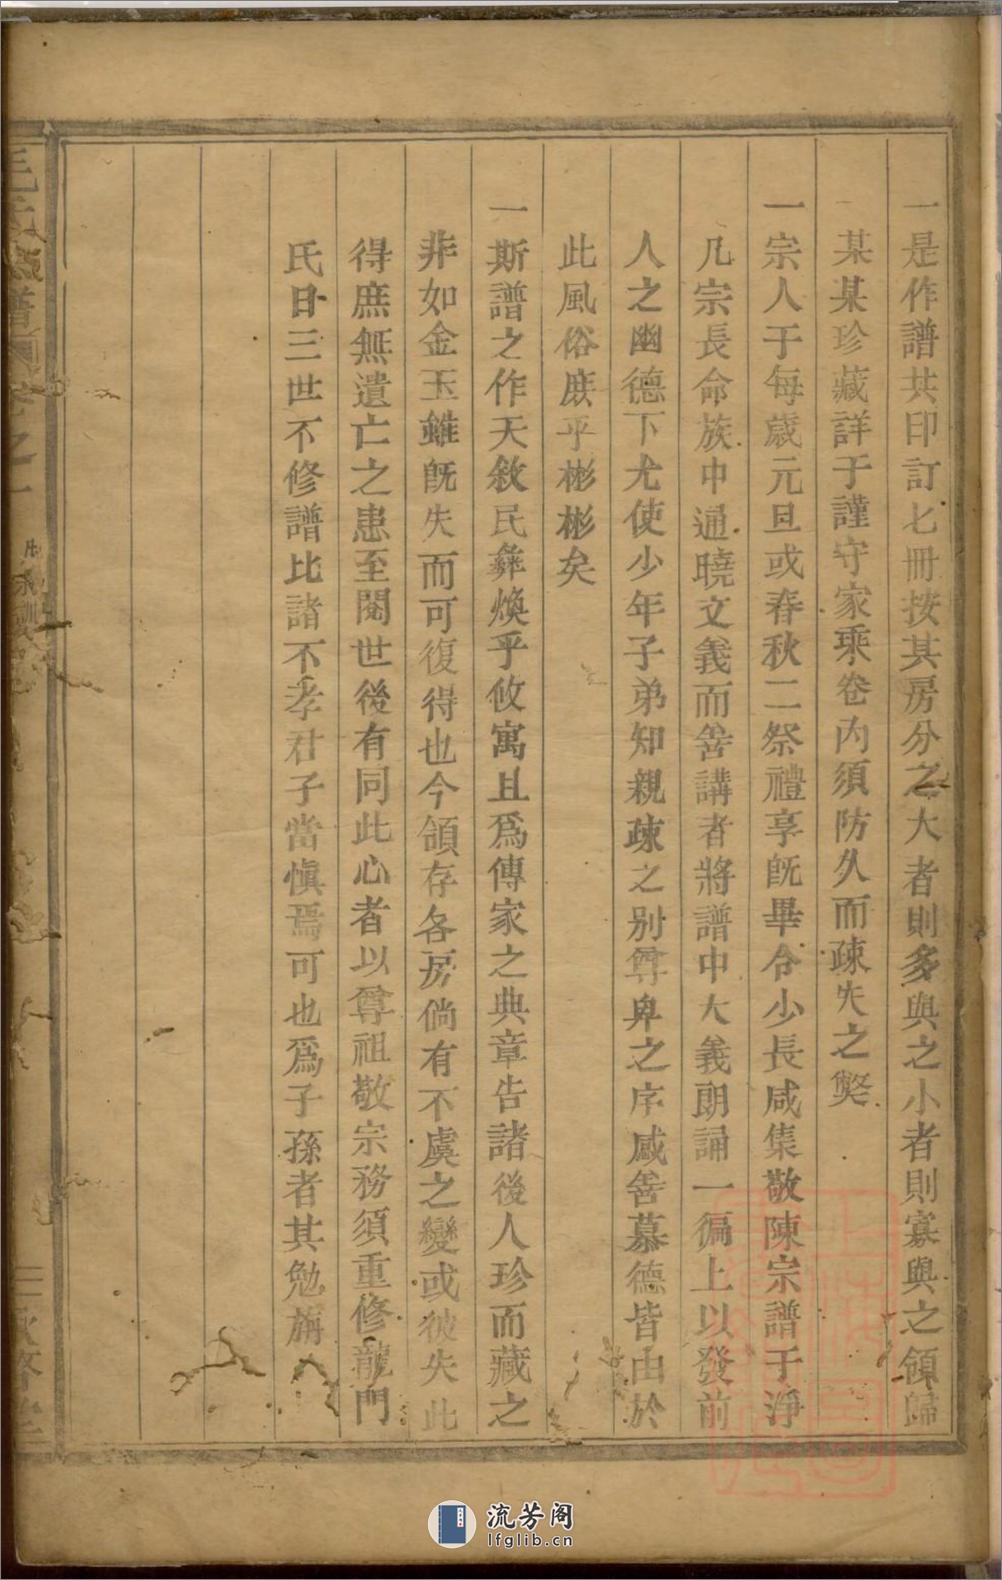 一是作譜共印訂七冊按其房分之大者則多與之小者則寡與之領歸
某某珍藏詳于謹守家乘卷內須防久而疎失之獘
一宗人于每歲元旦或春秋二祭禮享旣畢合少長咸集敬陳宗譜于淨
几宗長命族中通曉文義而善講者將譜中大義朗誦一徧上以發前
人之幽德下尤使少年子弟知親疎之别尊卑之序感善慕德皆由於
此風俗庶乎彬彬矣
一斯譜之作天敘民彝煥乎攸寓且爲傳家之典章告諸後人珍而藏之
非如金玉雖旣失而可復得也今領存各房倘有不虞之變或彼失此
得庶無遺亡之患至閱世後有同此心者以尊祖敬宗務須重修龍門
氏曰三世不修譜比諸不孝君子當愼焉可也爲子孫者其勉旃
毛氏 譜 卷之一
家訓
三 堂
流芳阁
lfglib.cn